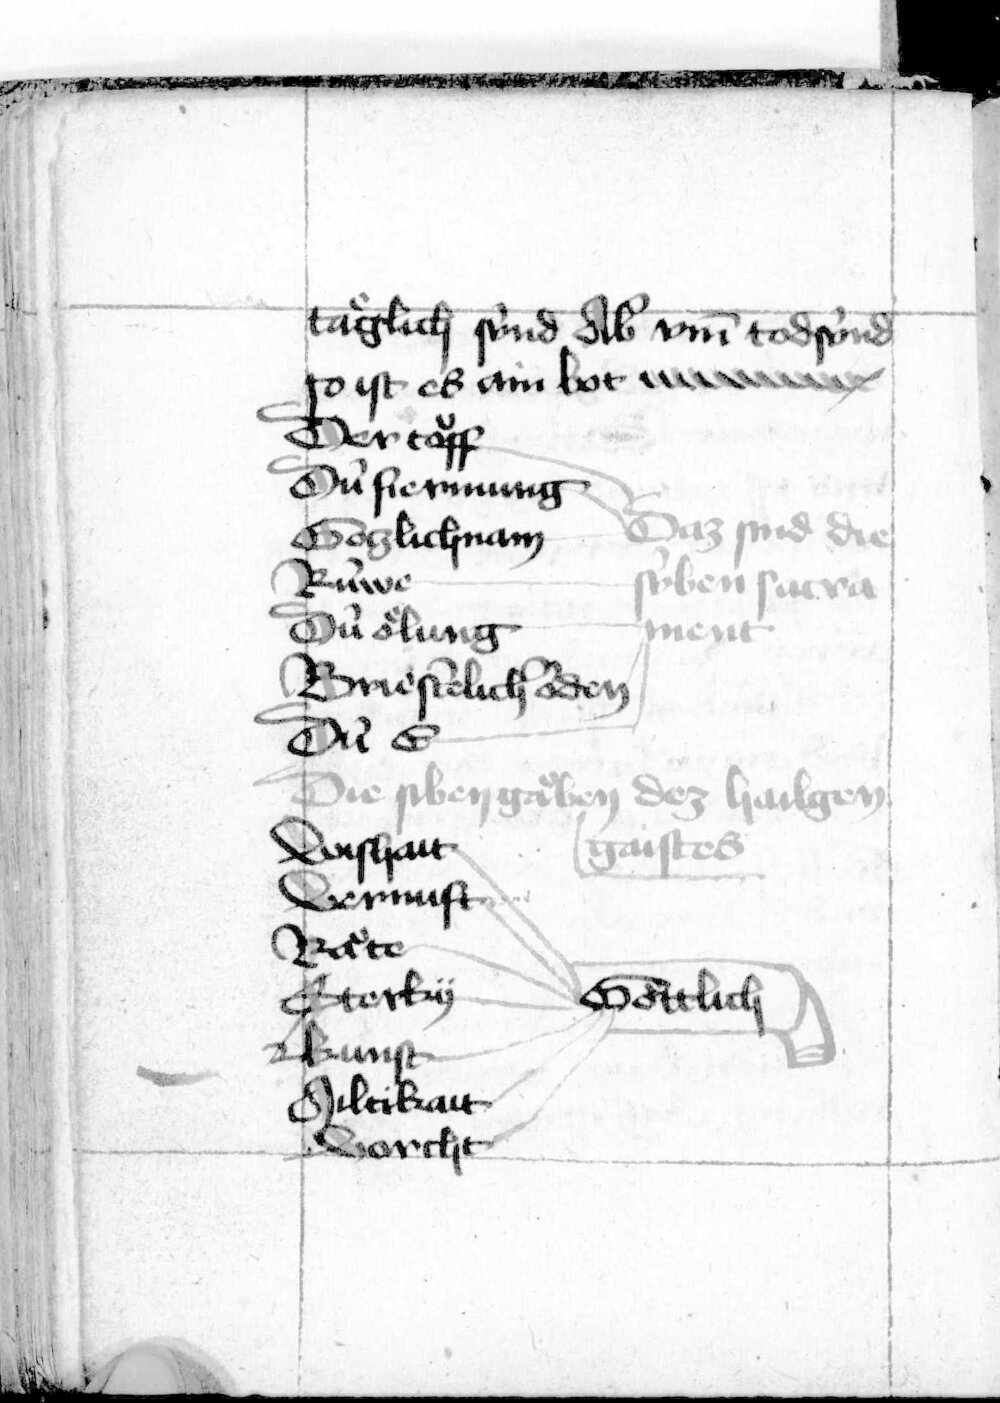 täglich sünd Ab͛ vm̄ todsünd
so ist es ain bot
Der toͮff
Dü fiermung
Gozlichnam
Rüwe
Dü ölung
Briest͛lich öden
Dü E
Daz sind die
syben sacra
ment
Die siben gäben dez hailgen
gaistes
Wishait
Vernuft
Räte
Sterky
kunst
Miltikait
Vorcht
Göttlich